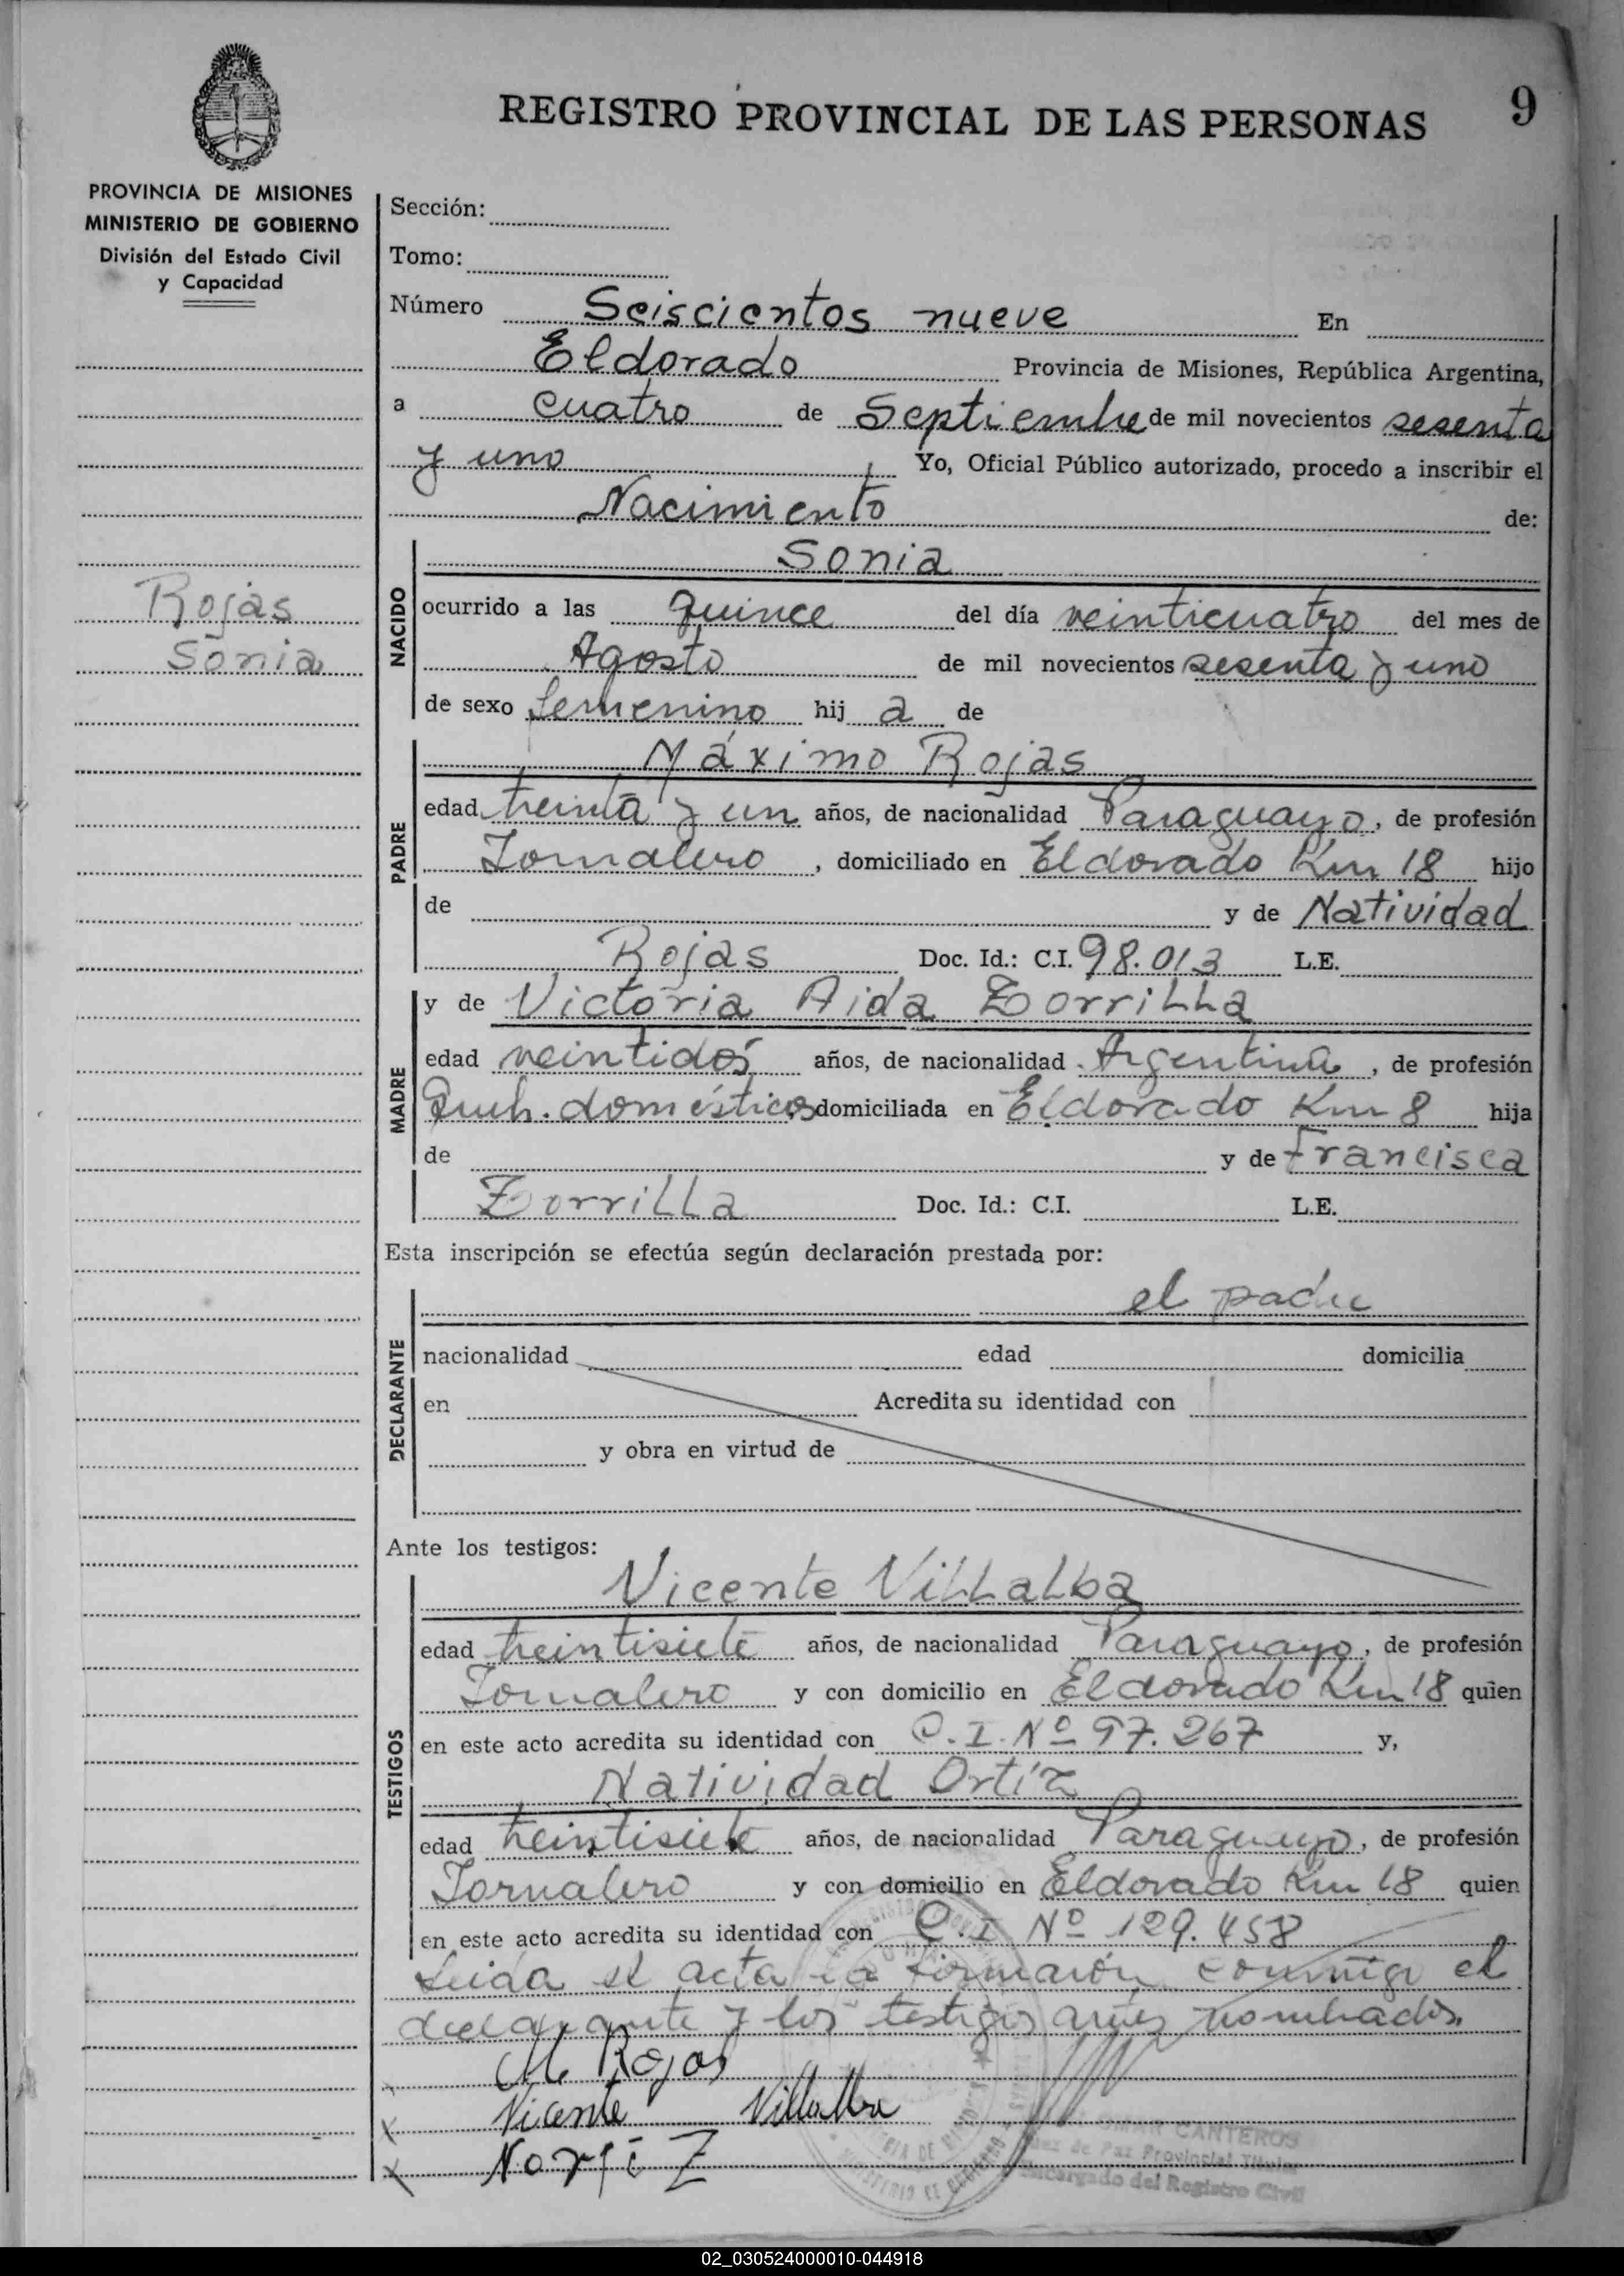 REGISTRO PROVINCIAL DE LAS PERSONAS
9
PROVINCIA DE MISIONES
MINISTERIO DE GOBIERNO
División del Estado Civil
y Capacidad
Rojas
Sonia
Sección:
Tomo:
Número Seiscientos nueve En
Eldorado Provincia de Misiones, República Argentina,
a cuatro de Septiembre de mil novecientos sesenta
y uno Yo, Oficial Público autorizado, procedo a inscribir el
Nacimiento de:
NACIDO
Sonia
ocurrido a las quince del día veinticuatro del mes de
Agosto de mil novecientos sesenta y uno
de sexo femenino hij a de
PADRE
Máximo Rojas
edad treinta y un años, de nacionalidad Paraguayo, de profesión
Jornalero, domiciliado en Eldorado Km 18 hijo
de y de Natividad
Rojas Doc. Id.: C.I. 98.013 L.E.
MADRE
y de Victoria Aida Zorrilla
edad veintidós años, de nacionalidad Argentina, de profesión
Queh. domésticos domiciliada en Eldorado Km 8 hija
de y de Francisca
Zorrilla Doc. Id.: C.I. L.E.
Esta inscripción se efectúa según declaración prestada por:
DECLARANTE
el padre
nacionalidad edad domicilia
en Acredita su identidad con
y obra en virtud de
Ante los testigos:
TESTIGOS
Vicente Villalba
edad treintisiete años, de nacionalidad Paraguayo, de profesión
Jornalero y con domicilio en Eldorado Km 18 quien
en este acto acredita su identidad con C.I. Nº 97.267 y,
Natividad Ortíz
edad treintisiete años, de nacionalidad Paraguayo, de profesión
Jornalero y con domicilio en Eldorado Km 18 quien
en este acto acredita su identidad con C.I Nº 129.458
Leida el acta la firmaron conmigo el
declarante y los testigos antes nombrados.
M Rojas
X Vicente Villalba
X N. ortiz
OMAR CANTEROS
Juez de Paz Provincial Titular
Encargado del Registro Civil
02_030524000010-044918